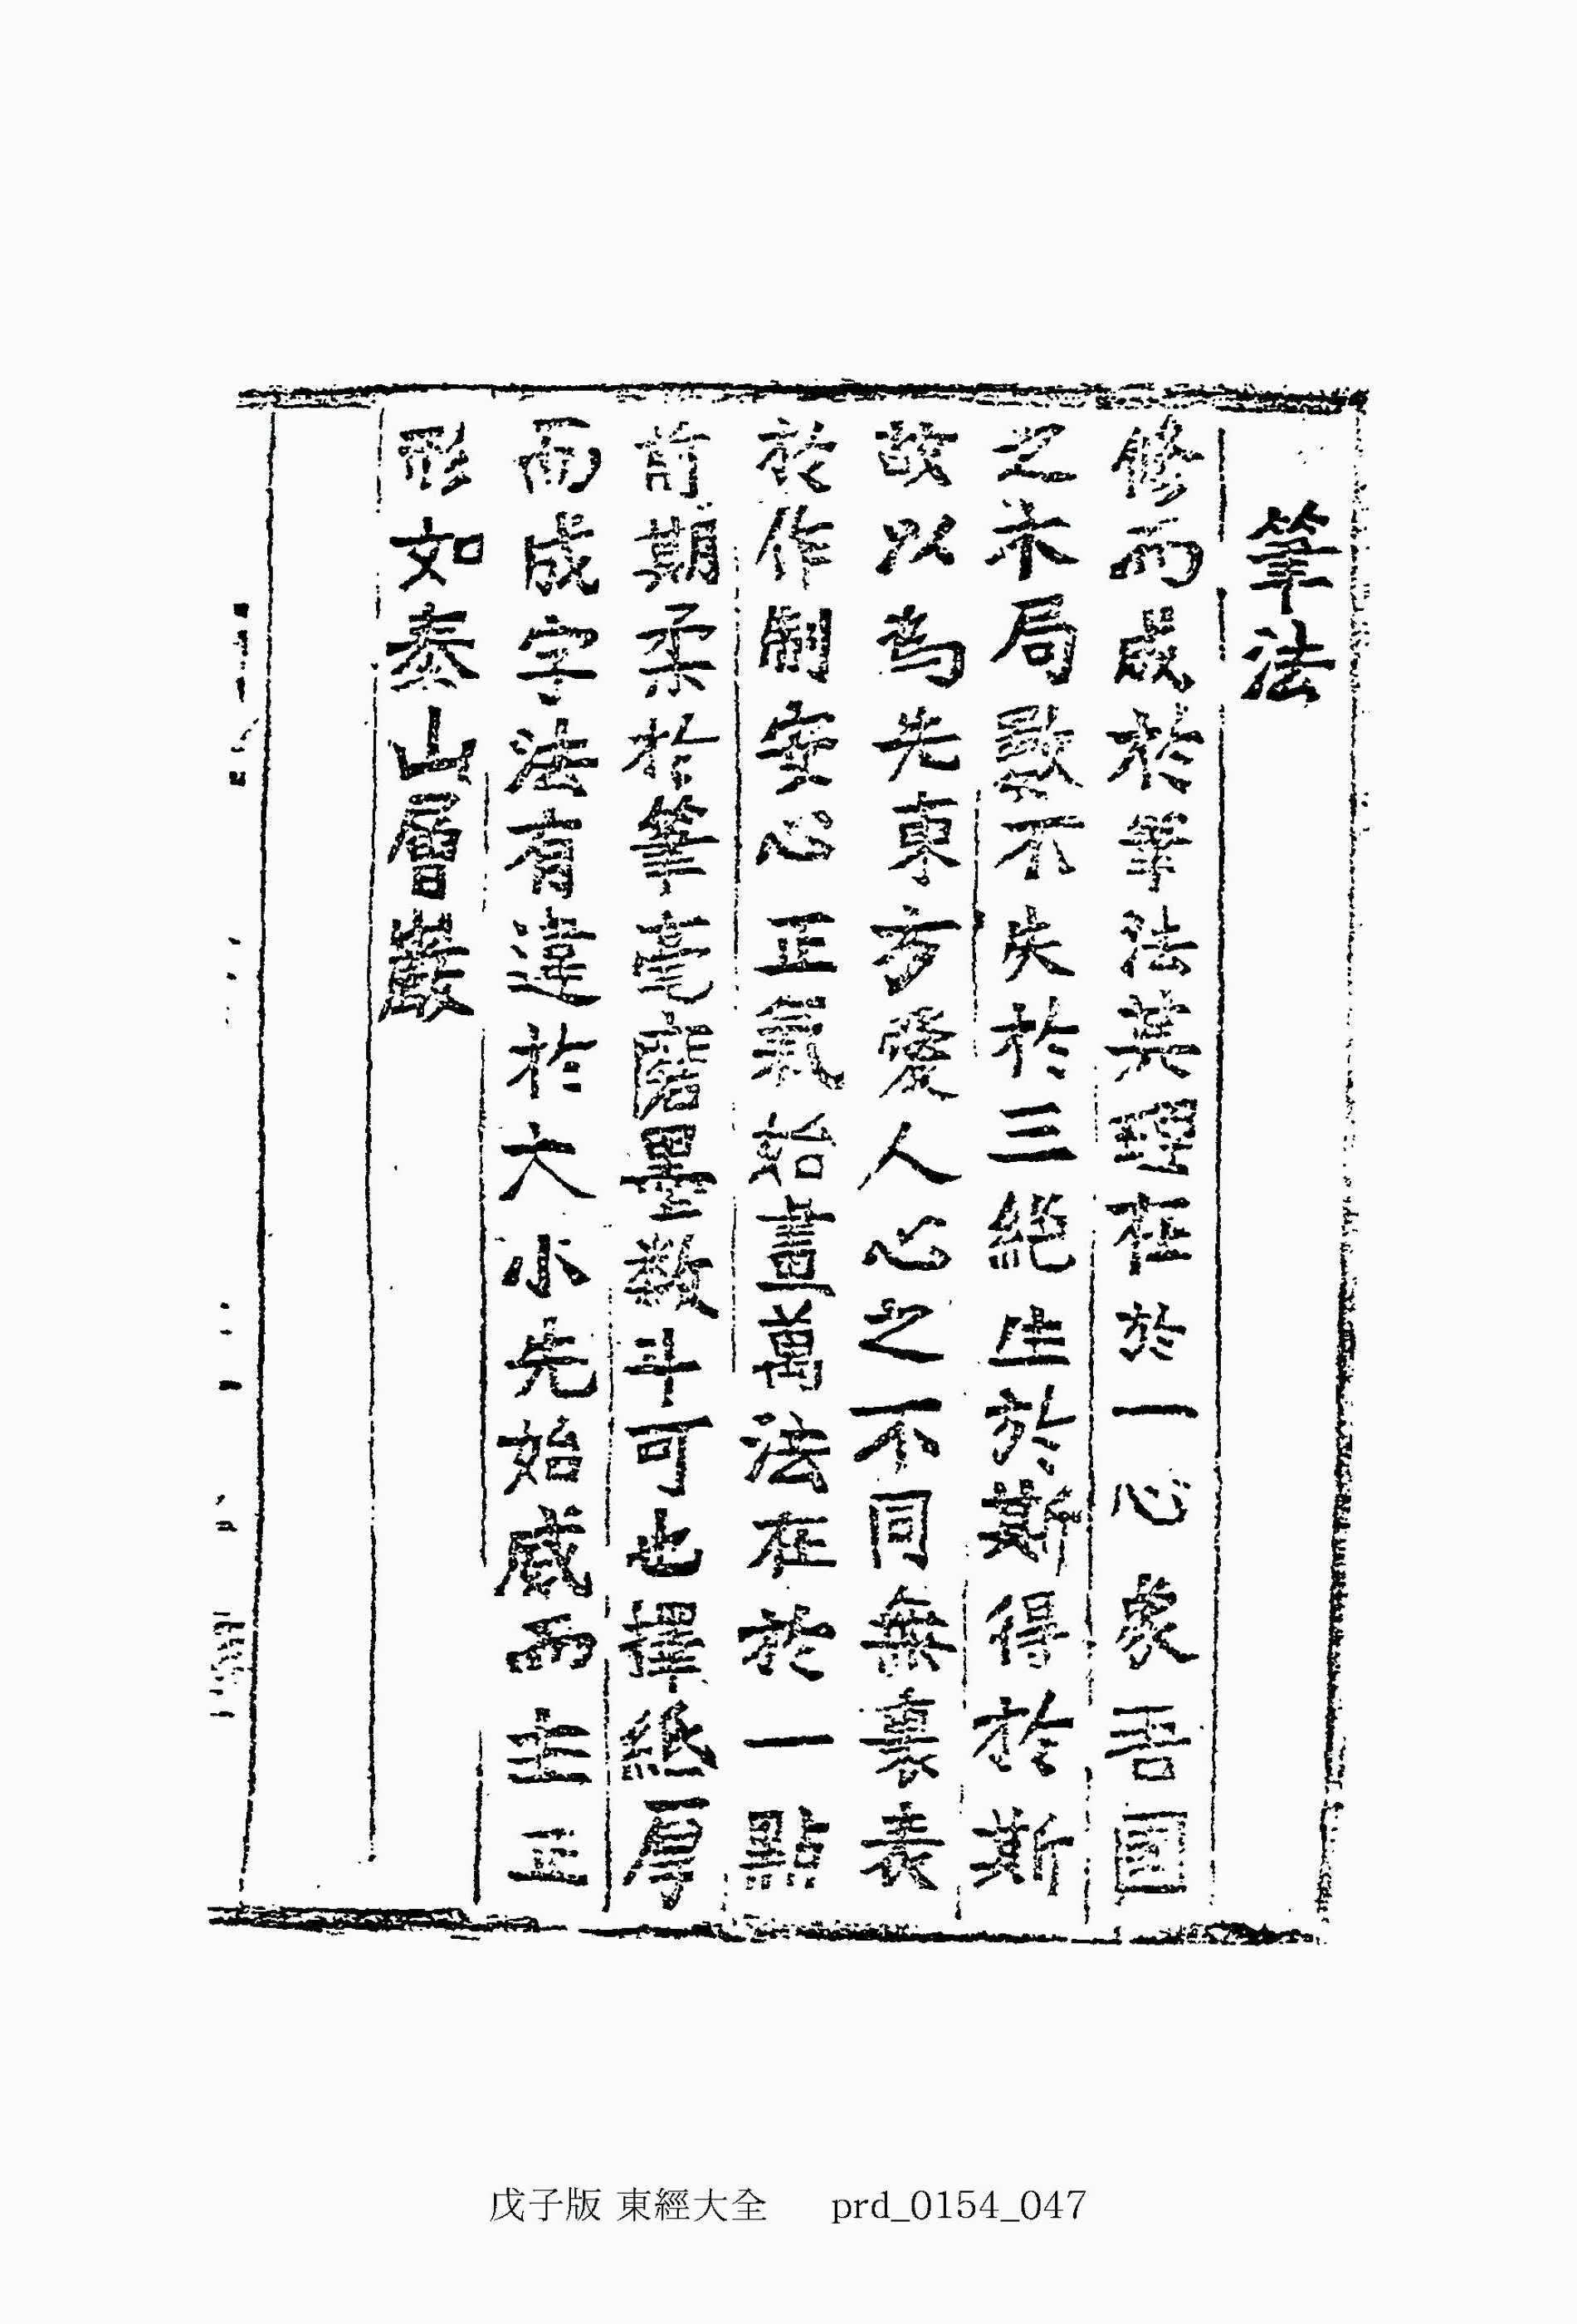 筆法
修而成於筆法其理在於一心象吾國
之木局數不失於三絶生於斯得於斯
故以爲先東方愛人心之不同無裏表
於作制安心正氣始畫萬法在於一點
前期柔於筆毫磨墨數斗可也擇紙厚
而成字法有違於大小先始威而主正
形如泰山層巖
戊子版 東經大全 prd_0154_047